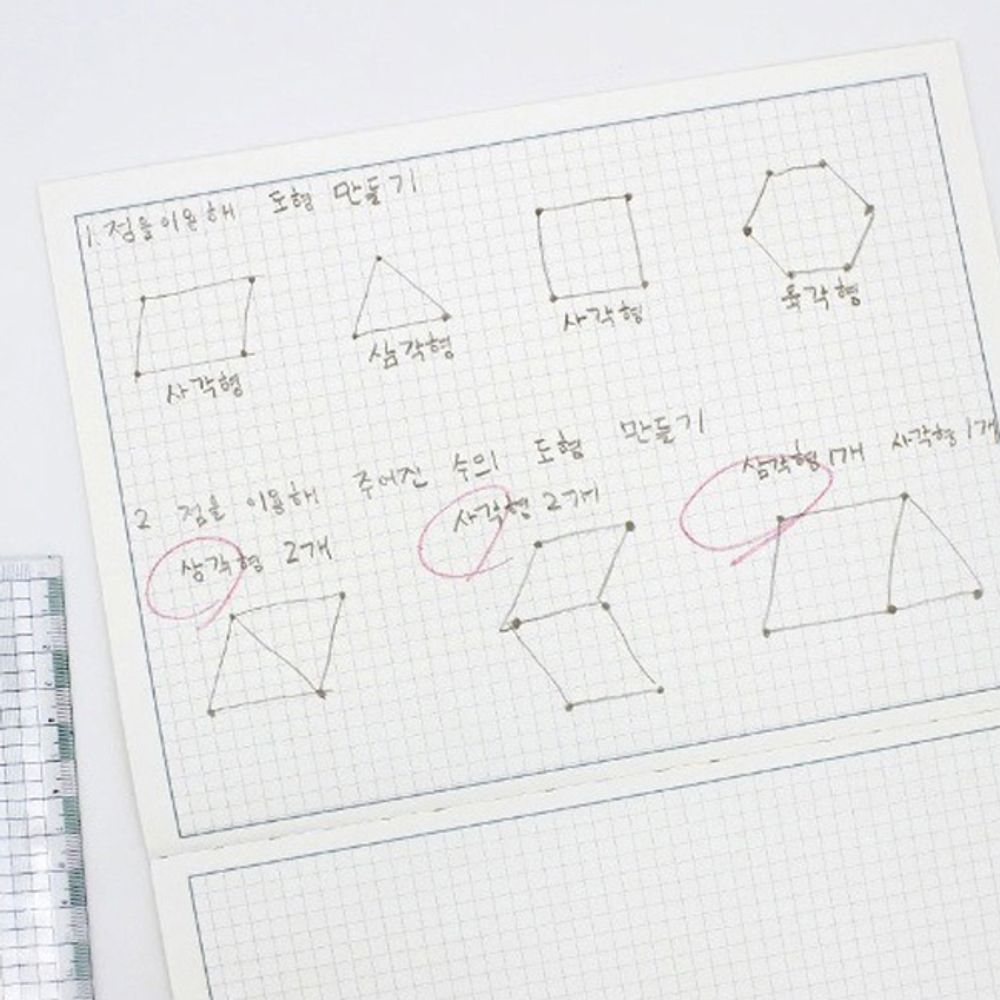 1. 점을 이용해 도형 만들기
사각형
삼각형
사각형
육각형
2 점을 이용해 주어진 수의 도형 만들기
삼각형 2개
사각형 2개
삼각형 1개 사각형 1개